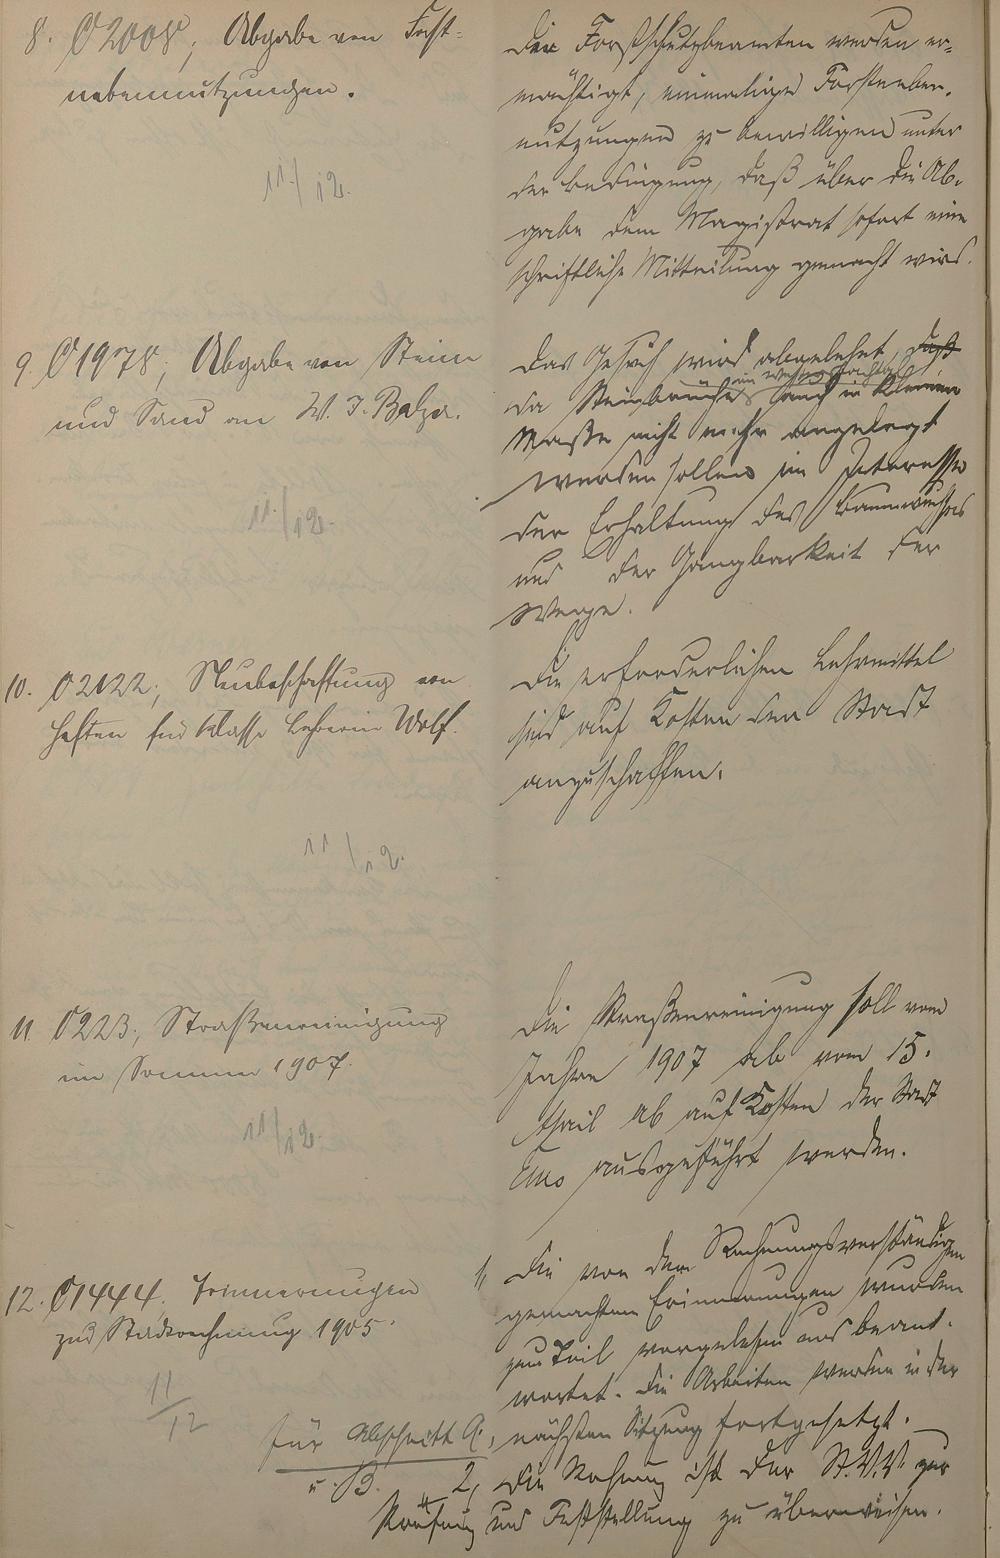 8. C2008; Abgabe von Forst-
nebennutzungen.
11/12.
Die Forstschutzbeamten werden er-
mächtigt, einmalige Forstneben-
nutzungen zu bewilligen unter
der Bedingung, daß über die Ab-
gabe dem Magistrat sofort eine
schriftliche Mitteilung gemacht wird.
9. C1978; Abgabe von Steine
und Sand an W. J. Balzer.
11/12.
Das Gesuch wird abgelehnt, daß
da Steinbrüche auch in kleinem
Maße nicht mehr angelegt
werden sollen im Interesse
der Erhaltung des Baumwuchses
und der Gangbarkeit der
Wege.
10. C2122; Neubeschaffung von
Heften für Klasse Lehrerin Wolf.
11/12.
Die erforderlichen Lehrmittel
sind auf Kosten der Stadt
anzuschaffen.
11. C223; Straßenreinigung
im Sommer 1907.
11/12.
Die Straßenreinigung soll vom
Jahre 1907 ab vom 15.
April ab auf Kosten der Stadt
ausgeführt werden.
12. C1444. Erinnerungen
zur Stadtrechnung 1905.
11/12
1, Die von dem Rechnungsverständigen
gemachten Erinnerungen wurden
zum Teil vorgelesen und beant-
wortet. Die Arbeiten werden in der
nächsten Sitzung fortgesetzt.
für Abschnitt A.
u. B.
2, Die Rechnung ist der St.V.V. zur
Prüfung und Feststellung zu überweisen.